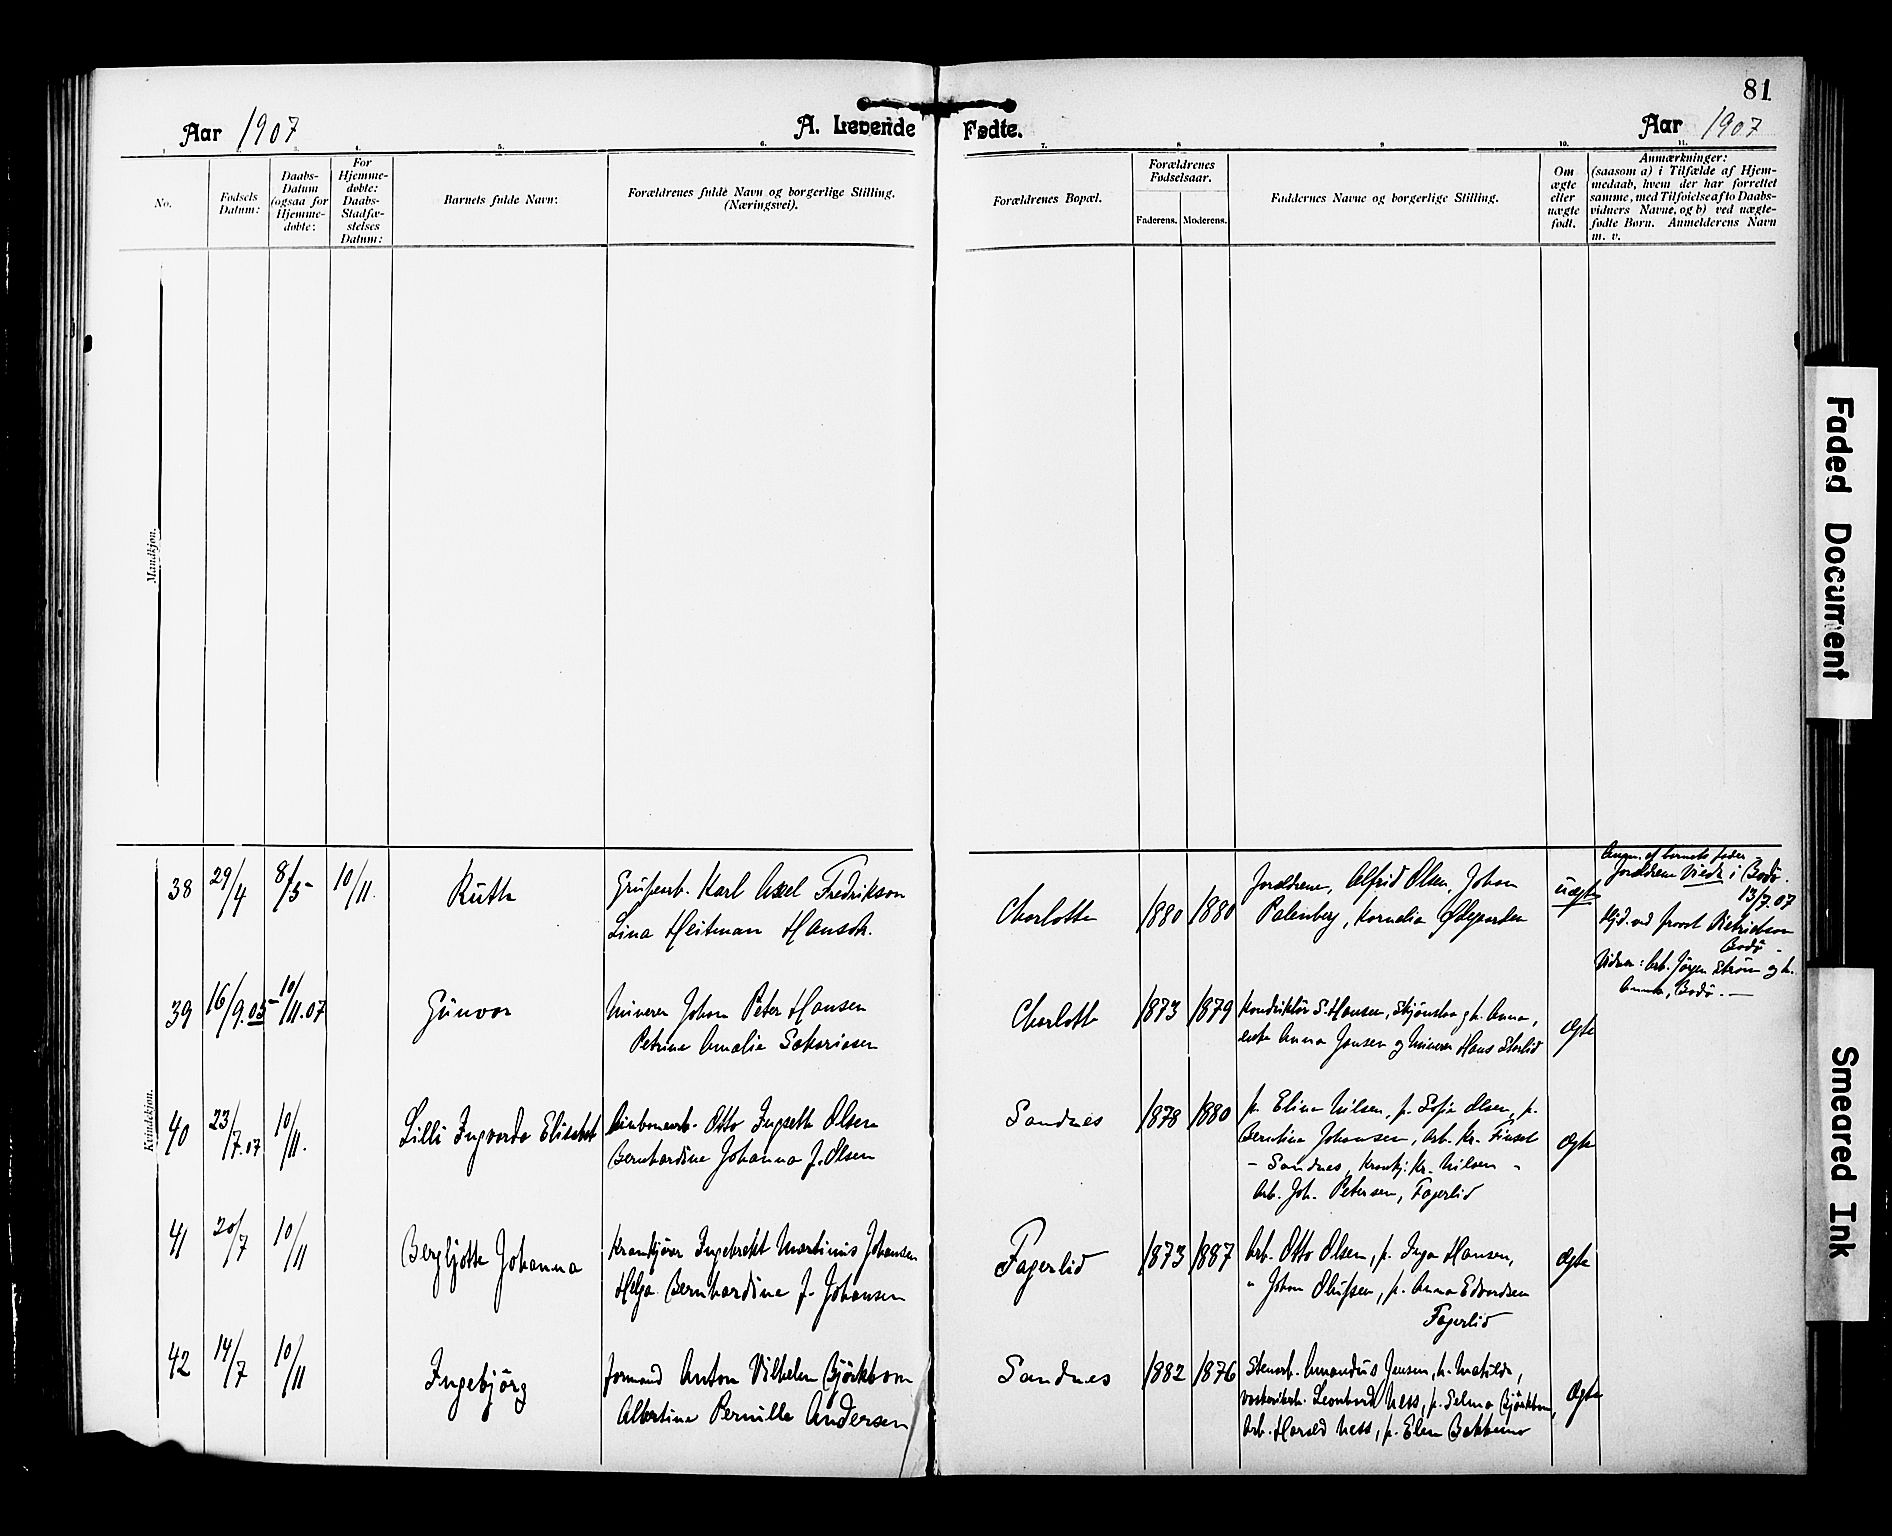 81
Aar 1907
A. Levende Fødte.
Aar 1907
1.
2.
3.
4.
5.
6.
7.
8
9
10.
11.
No.
Fødsels Datum:
Daabs-Datum (ogsaa for Hjemme-døbte:
For Hjemme-døbte: Daabs-Stadfæ-stelses Datum:
Barnets fulde Navn:
Forældrenes fulde Navn og borgerlige Stilling.
(Næringsvei).
Forældrenes Bopæl.
Forældrenes Fødselsaar.
Faderens.
Moderens.
Faddernes Navne og borgerlige Stilling.
Om ægte eller uægte født.
Anmærkninger:
(saasom a) i Tilfælde af Hjem-
medaab, hvem der har forrettet
samme, med Tilføielse af to Daabs-
vidners Navne, og b) ved uægte-
fødte Børn. Anmelderens Navn
m. v.
Mandkjøn.
Kvindekjøn.
38
29/4
8/5
10/11.
Ruth
Karl Axel Fredrikson
Lina Heitman Hansdr.
Charlotta
1880
1880
Forældrene, Alfrid Olsen, Johan
Palenberg, Kornelia Ødegaarden
uægte
Angm. af barnets fader
Forældrene viede i Bodø
13/7.07
Hjd. ved provst
Bodø
Vidner: Arb. Jørgen Strøm og h.
Anna, Bodø. —
39
16/9.05
10/11.07
Gunvor
Minerer Johan Peter Hansen
Petrine Amalie Sakariasen
Charlotta
1873
1879
Konduktør S. Hansen, h. Anna,
enke Anna Jensen og Minerer Hans Storlid
ægte
40
23/7.07
10/11.
Lilli Ingvarda Elisabet
Otto Olsen
Bernhardine Johanna f. Olsen
Sandnes
1878
1880
p. Elina Nilsen, p. Sofie Olsen, p.
Berntine Johansen, Arb. Kr. Finset
– Sandnes, Kr. Nilsen
Arb. Joh. Petersen, Fagerlid
ægte
41
20/7
10/11
Bergljotte Johanna
Ingebrekt Martinius Johansen
Helga Bernhardine f. Johansen
Fagerlid
1873
1887
Arb. Otto Olsen, p. Inga Hansen,
" Johan Olufsen, p. Anna Edvardsen
Fagerlid
ægte
42
14/7
10/11
Ingebjörg
Formand Anton Vilhelm Björkbom
Albertine Pernille Andersen
Sandnes
1882
1876
Stenarb. Amandus Jensen, h. Matilda,
Leonhard Ness, p. Selma Björkbom,
Arb. Harald Ness, p. Elen Bakkemo
ægte
Faded Document
Smeared Ink